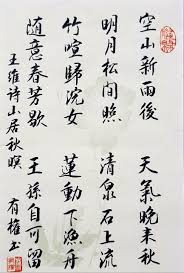 空山新雨後 天氣晚来秋
明月松間照 清泉石上流
竹喧歸浣女 蓮動下漁舟
随意春芳歇 王孫自可留
王维诗山居秋暝 有權书